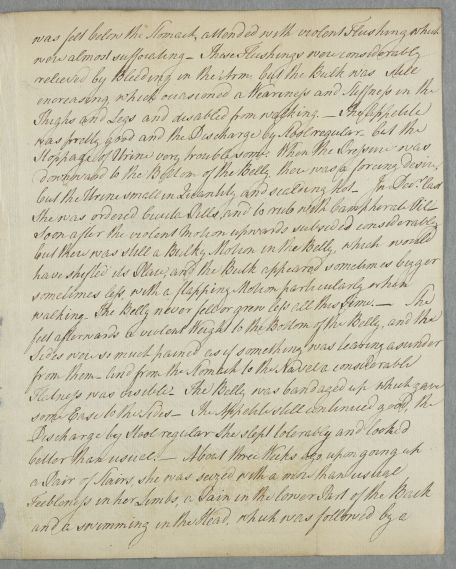 was felt below the Stomach, attended with violent Flushing which
were almost suffocating – These Flushings were considerably
relieved by Bleeding in the Arm, but the Bulk was still
increasing which occasioned a Weariness and Stiffness in the
Thighs and Legs and disabled from walking. – The Appetite
was pretty good and the Discharge by Stool regular but the
Stoppage of Urine very troublesome. When the Pressure was
downward to the Bottom of the Belly there was a forcing desire,
but the Urine small in Quantity, and scalding hot – In Decr. last
She was ordered Cicuta Pills, and to rub with Camphorate Oil
Soon after the violent motion upwards subsided considerably
but there was still a Bulky Motion in the Belly, which would
have shifted its Place, and the Bulk appeared sometimes bigger
sometimes less, with a flapping Motion particularly when
walking. The Belly never fell or grew less all this time. – She
felt afterwards a violent Weight to the Bottom of the Belly, and the
Sides were so much pained as if something was tearing asunder
from them – and from the Stomach to the Navel a considerable
Flatness was visible – The Belly was bandaged up which gave
some Ease to the Sides – The Appetite still continued good, the
Discharge by Stool regular She slept tolerably and look'd
better than usual. – About three Weeks ago upon going up
a Pair of Stairs, she was seized with a more than usual
Feebleness in her Limbs, a Pain in the lower Part of the Back
and a swimming in the Head, which was followed by a